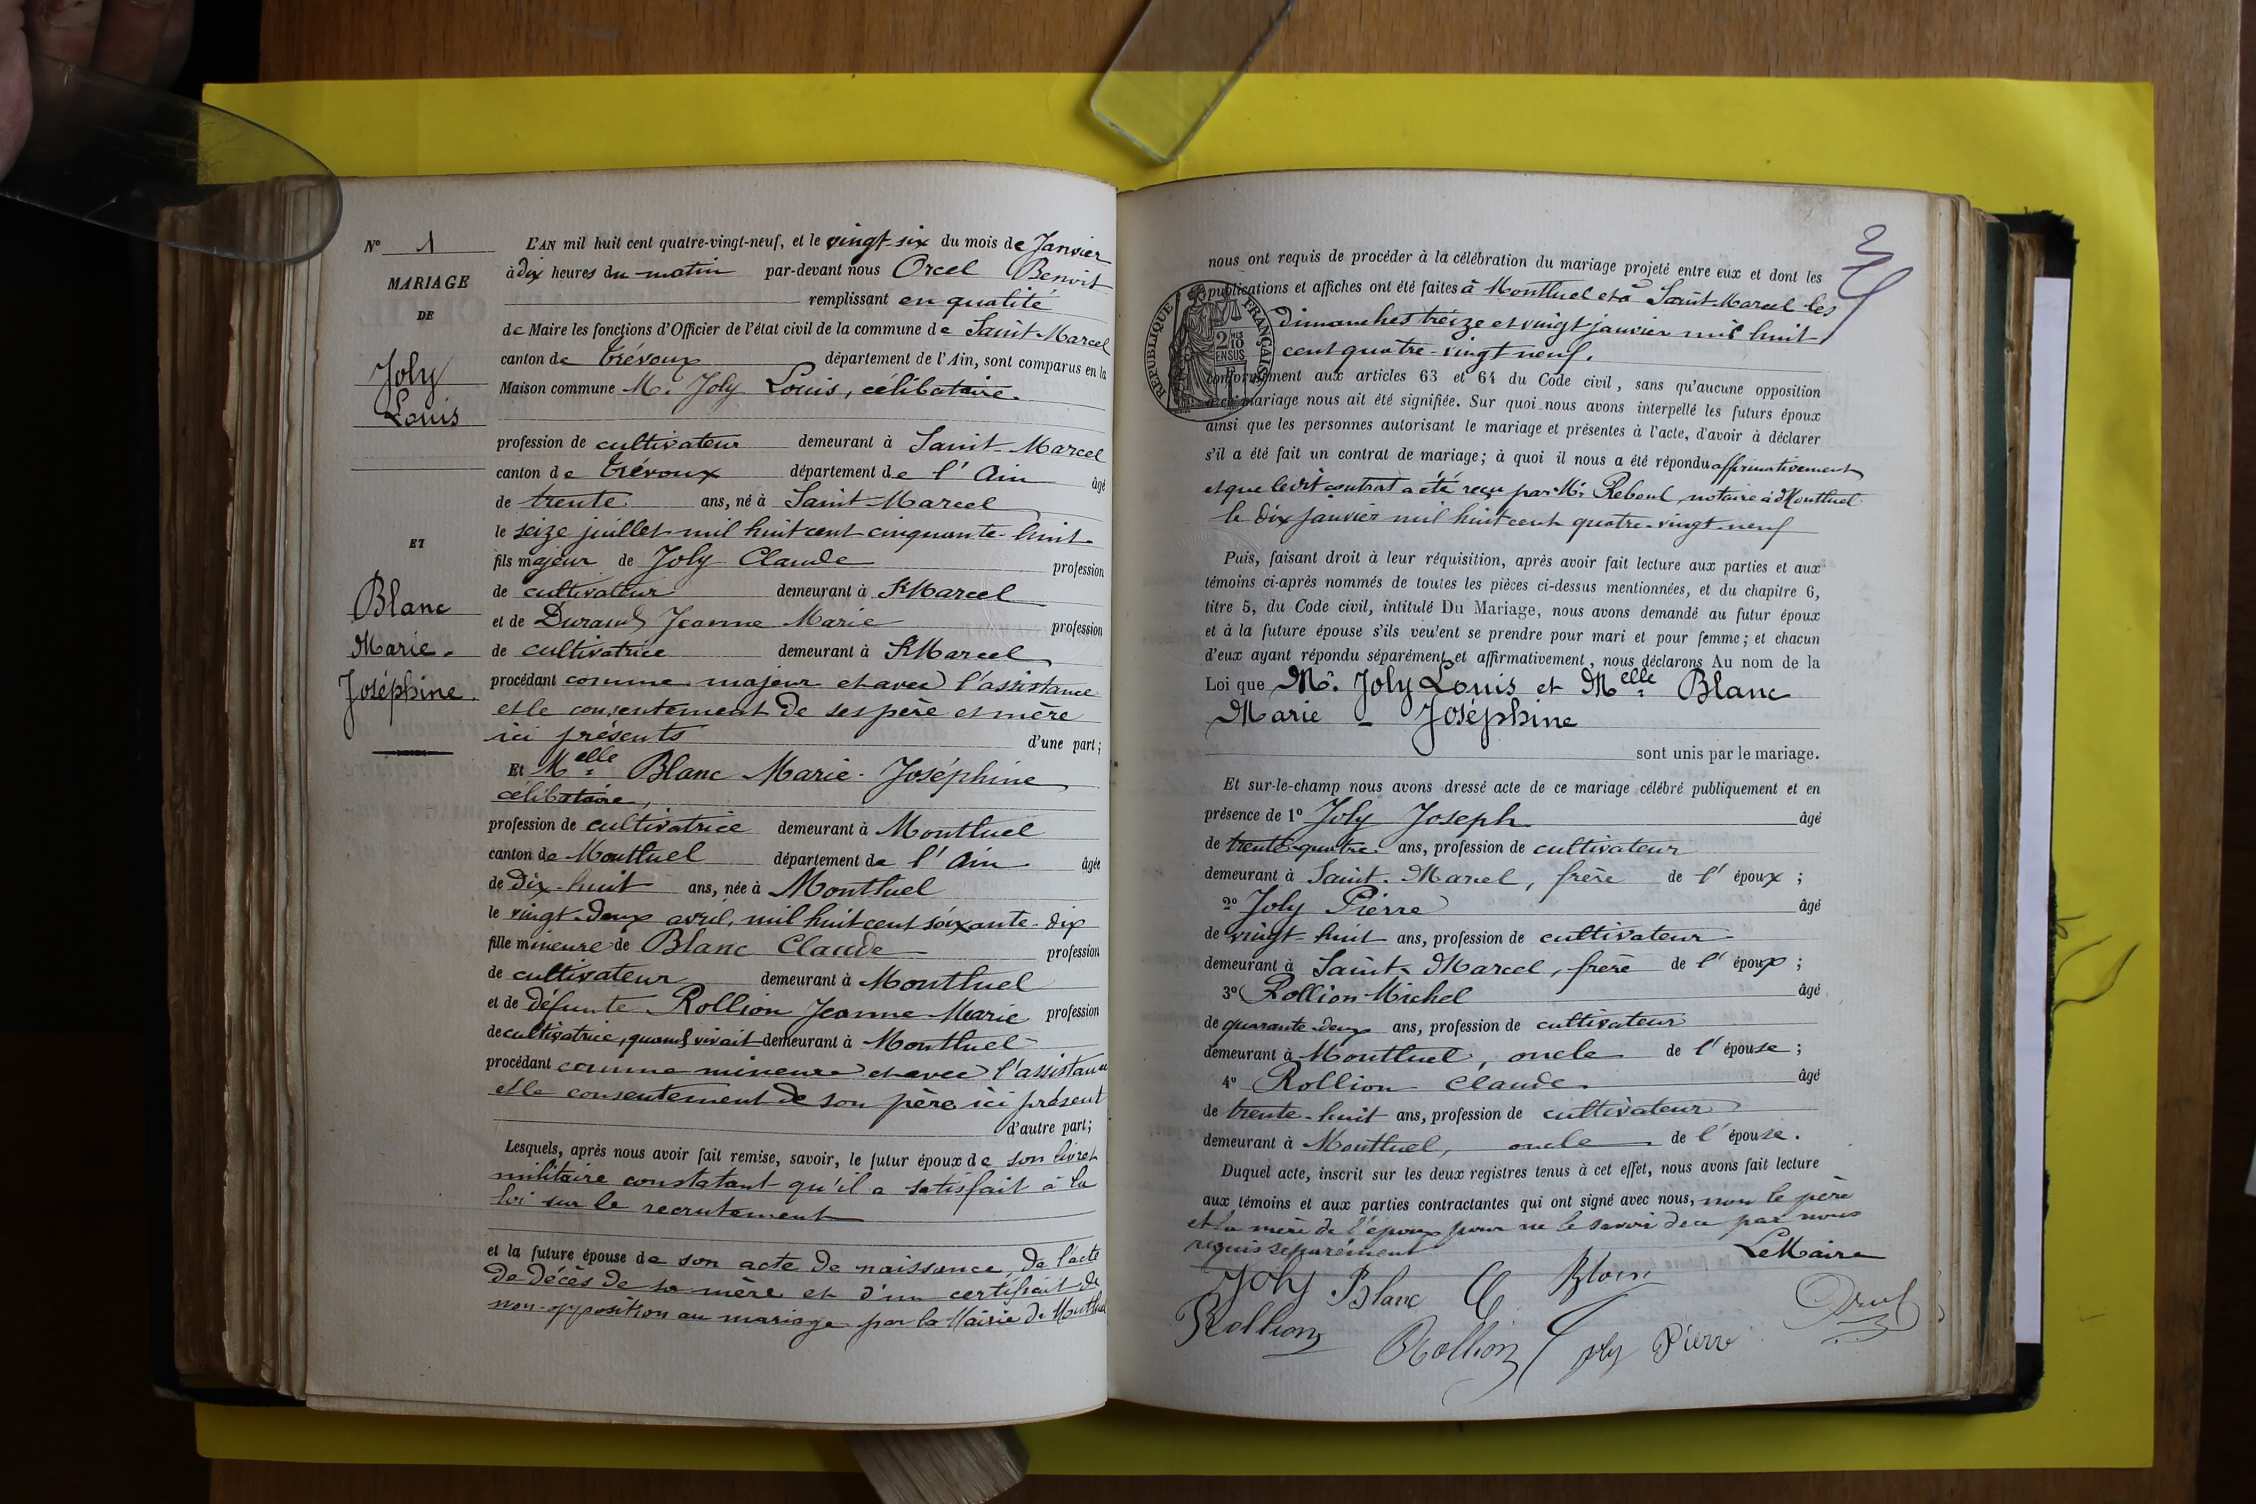 N° 1
MARIAGE
DE
Joly
Louis
ET
Blanc
Marie-
Joséphine.
L'AN mil huit cent quatre-vingt-neuf, et le vingt-six du mois de Janvier
à dix heures du matin par-devant nous Orcel Benoit
remplissant en qualité
de Maire les fonctions d'Officier de l'état civil de la commune de Saint-Marcel
canton de Trévoux département de l'Ain, sont comparus en la
Maison commune M. Joly Louis, célibataire.
profession de cultivateur demeurant à Saint-Marcel
canton de Trévoux département de l'Ain âgé
de trente ans, né à Saint-Marcel
le seize juillet mil huit cent cinquante-huit
fils majeur de Joly Claude profession
de cultivateur demeurant à St Marcel
et de Durand Jeanne Marie profession
de cultivatrice demeurant à St Marcel
procédant comme majeur et avec l'assistance
et le consentement de ses père et mère
ici présents d'une part;
Et Melle Blanc Marie-Joséphine
célibataire,
profession de cultivatrice demeurant à Montluel
canton de Montluel département de l'Ain âgée
de dix-huit ans, née à Montluel
le vingt-deux avril, mil huit cent soixante-dix
fille mineure de Blanc Claude profession
de cultivateur demeurant à Montluel
et de défunte Rollion Jeanne-Marie profession
de cultivatrice, quand vivait demeurant à Montluel
procédant comme mineure et avec l'assistance
et le consentement de son père ici présent
d'autre part;
Lesquels, après nous avoir fait remise, savoir, le futur époux de son livret
militaire constatant qu'il a satisfait à la
loi sur le recrutement
et la future épouse de son acte de naissance, de l'acte
de décès de sa mère et d'un certificat de
non-opposition au mariage par la Mairie de Montluel
2
nous ont requis de procéder à la célébration du mariage projeté entre eux et dont les
publications et affiches ont été faites à Montluel et à Saint-Marcel les
dimanches treize et vingt janvier mil huit
cent quatre-vingt neuf.
RÉPUBLIQUE FRANÇAISE
2/10 EN SUS
conformément aux articles 63 et 64 du Code civil, sans qu'aucune opposition
à ce mariage nous ait été signifiée. Sur quoi nous avons interpellé les futurs époux
ainsi que les personnes autorisant le mariage et présentes à l'acte, d'avoir à déclarer
s'il a été fait un contrat de mariage; à quoi il nous a été répondu affirmativement
et que ledit contrat a été reçu par Me Reboul, notaire à Montluel
le dix janvier mil huit cent quatre-vingt-neuf
Puis, faisant droit à leur réquisition, après avoir fait lecture aux parties et aux
témoins ci-après nommés de toutes les pièces ci-dessus mentionnées, et du chapitre 6,
titre 5, du Code civil, intitulé Du Mariage, nous avons demandé au futur époux
et à la future épouse s'ils veulent se prendre pour mari et pour femme; et chacun
d'eux ayant répondu séparément et affirmativement, nous déclarons Au nom de la
Loi que Mr. Joly Louis et Melle Blanc
Marie-Joséphine
sont unis par le mariage.
Et sur-le-champ nous avons dressé acte de ce mariage célébré publiquement et en
présence de 1° Joly Joseph âgé
de trente-quatre ans, profession de cultivateur
demeurant à Saint-Marcel, frère de l'époux;
2° Joly Pierre âgé
de vingt-huit ans, profession de cultivateur
demeurant à Saint-Marcel, frère de l'époux;
3° Rollion Michel âgé
de quarante-deux ans, profession de cultivateur
demeurant à Montluel, oncle de l'épouse;
4° Rollion Claude. âgé
de trente-huit ans, profession de cultivateur
demeurant à Montluel, oncle de l'épouse.
Duquel acte, inscrit sur les deux registres tenus à cet effet, nous avons fait lecture
aux témoins et aux parties contractantes qui ont signé avec nous, non le père
et la mère de l'époux pour ne le savoir de ce par nous
requis séparément
Le Maire
Joly Blanc Blanc
Rollion Rollion Joly Pierre